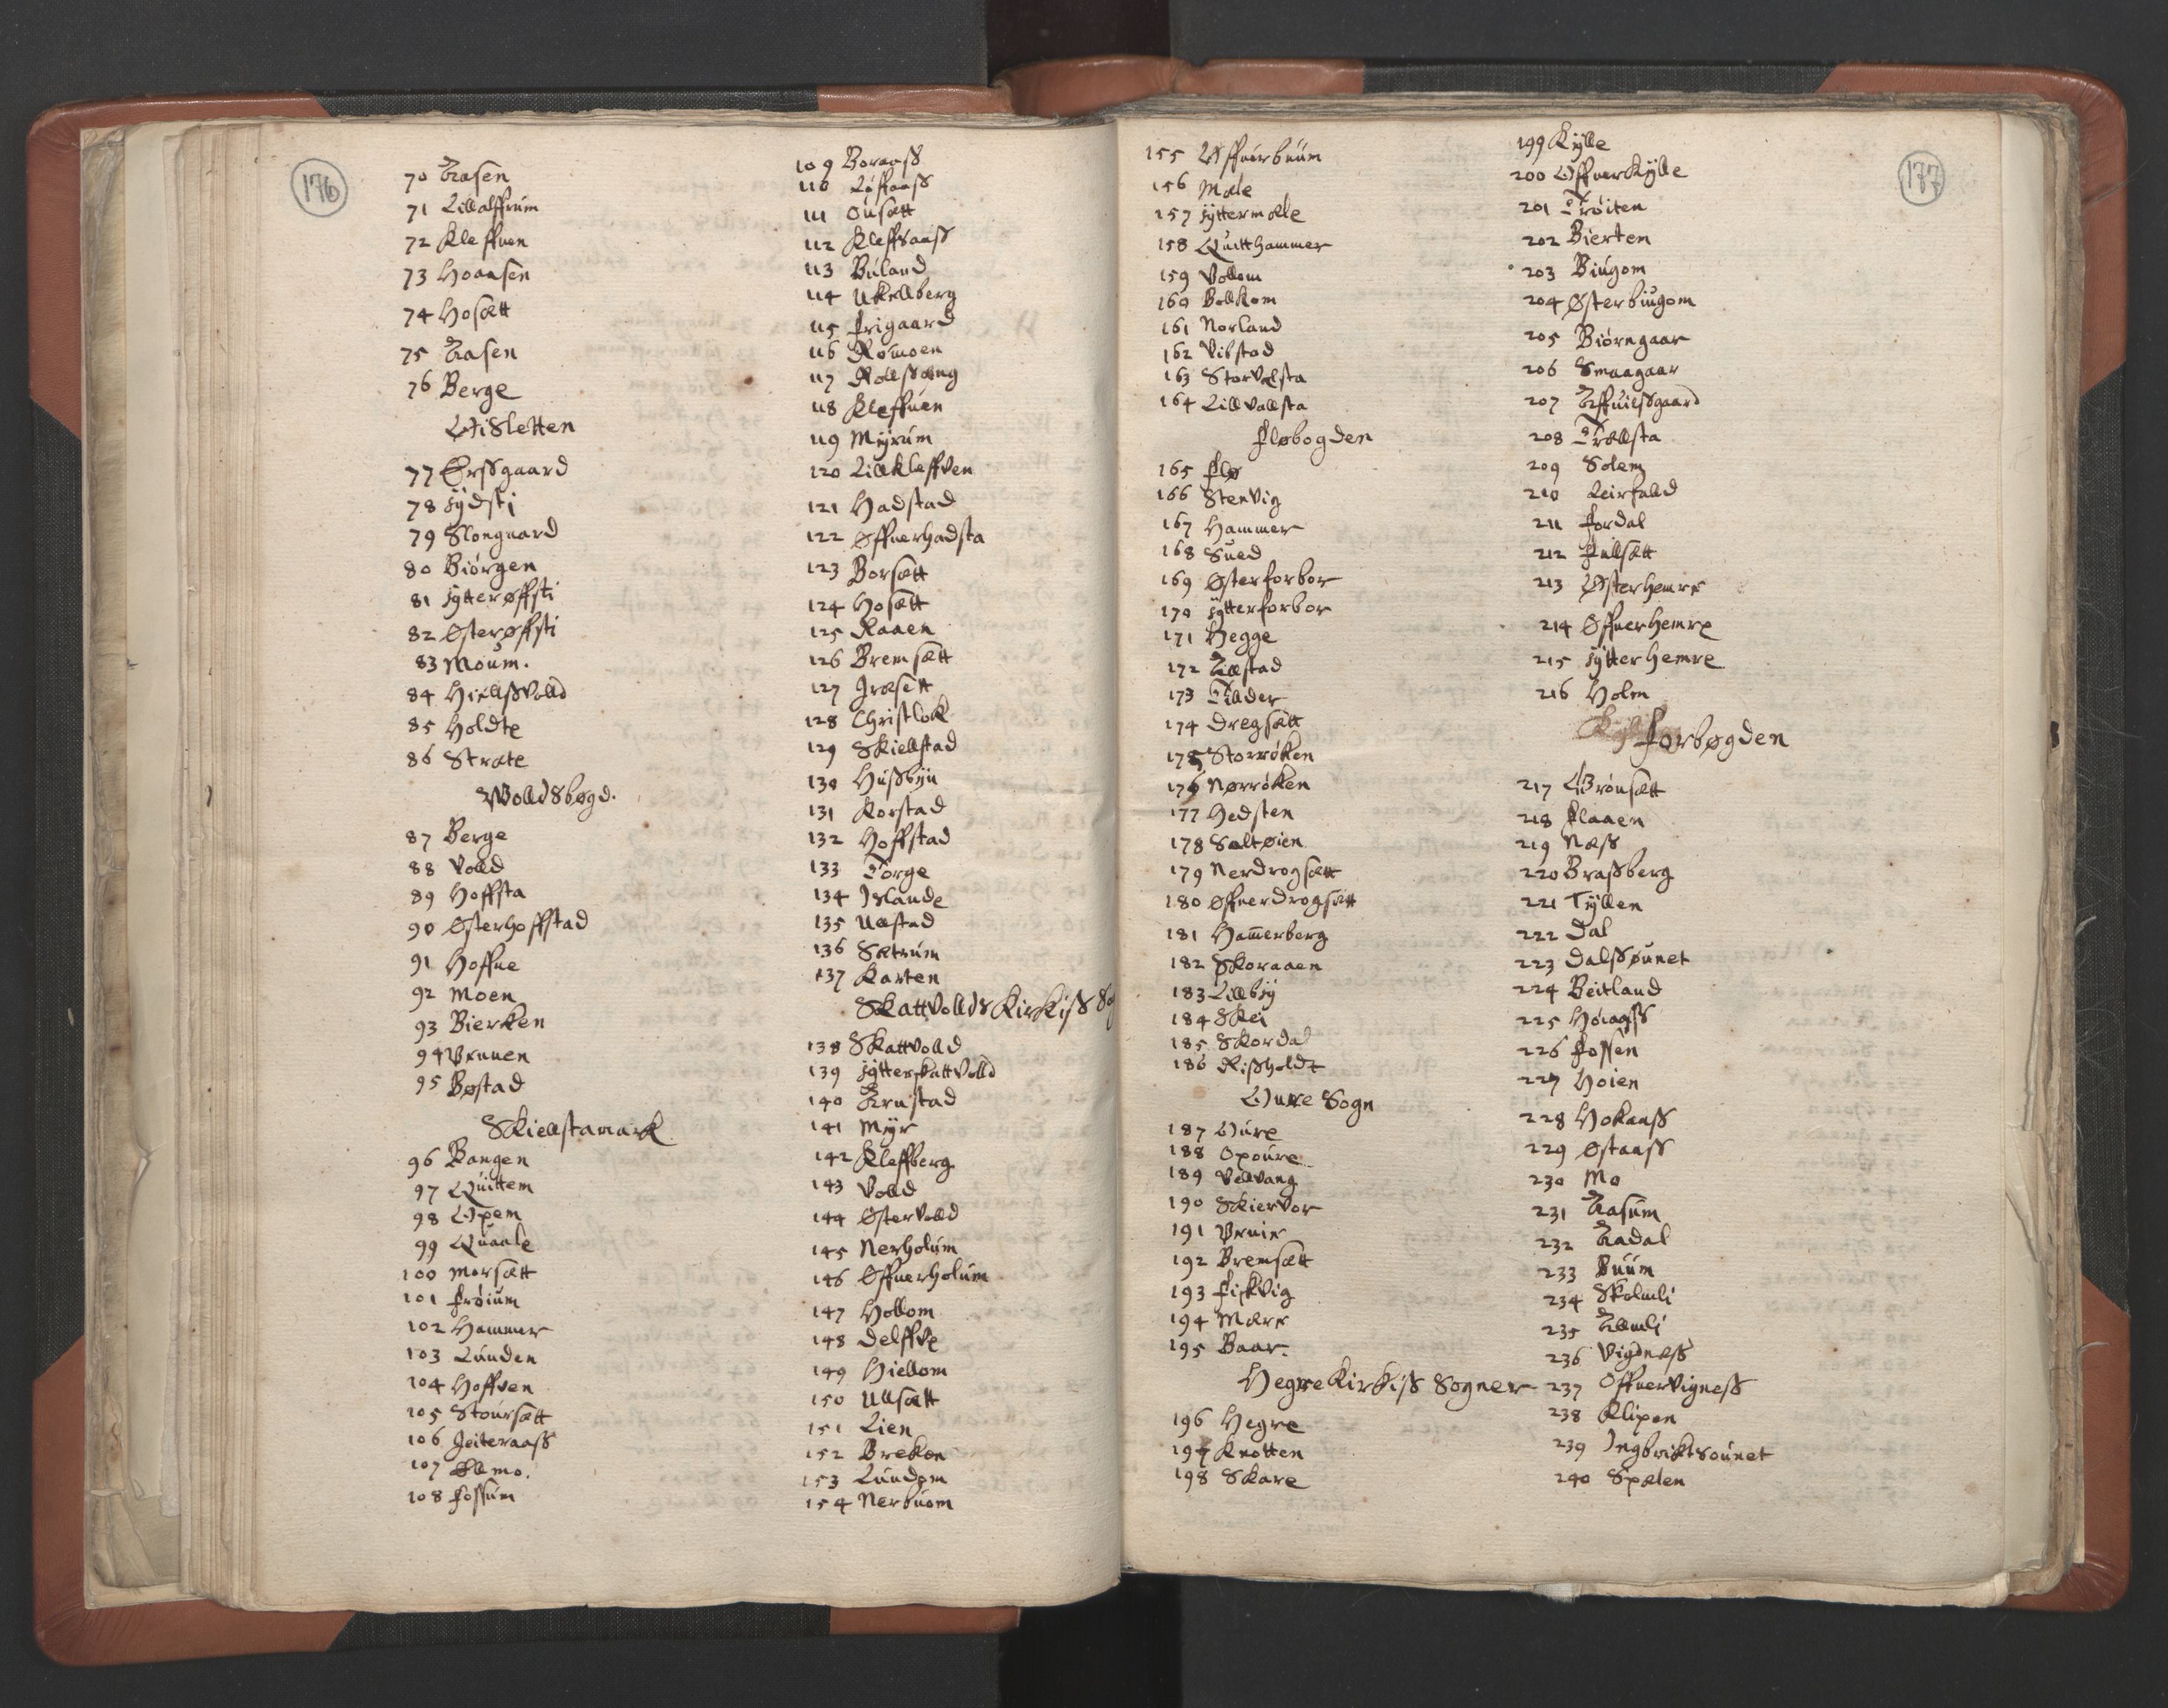 176
70 Aasen
71 Lillalffrum
72 Kleffuen
73 Hoaasen
74 Hosætt
75 Aasen
76 Berge
Wisletten
77 Ørssgaard
78 Hydsti
79 Slongaard
80 Biørgen
81 Hytterøffsti
82 Østerøffsti
83 Moum.
84 Hiellssvolld
85 Holdte
86 Stræte
Wolldsbøgd.
87 Berge
88 Volld
89 Hoffsta
90 Østerhoffstad
91 Hoffue
92 Moen
93 Bierken
94 Vennen
95 Bøstad
Skiellstamark
96 Bangen
97 Quittem
98 Opem
99 Quaale
100 Morsætt
101 Frøium
102 Hammer
103 Lunden
104 Hoffven
105 Stoursætt
106 Jeiteraass
107 Ellemo.
108 Fossum
109 Boraass
110 Løffaass
111 Ousætt
112 Kleffsaass
113 Buland
114 Ukellberg
115 Frigaard
116 Romoen
117 Rollssæng
118 Kleffuen
119 Myrum
120 Lillkleffven
121 Hadstad
122 Øffuerhadsta
123 Borsætt
124 Hosætt
125 Raaen
126 Bremsætt
127 Græsett
128 Christlok
129 Skiellstad
130 Hussbyn
131 Korstad
132 Hoffstad
133 Torge
134 Islande
135 Uelstad
136 Sætrum
137 Karten
Skattvollds Kirkiss So
138 Skattvolld
139 Hytterskattvolld
140 Arnstad
141 Myr
142 Kleffberg
143 Volld
144 Østervolld
145 Nerholum
146 Øffuerholum
147 Hollom
148 Delffve
149 Hiellom
150 Ullsætt
151 Lien
152 Brekon
153 Lundom
154 Nerbuom
155 Offuerbuum
156 Mæle
157 Hyttermæle
158 Quitthammer
159 Vollom
160 Bollkom
161 Norland
162 Vibstad
163 Storvolsta
164 Lillvollsta
Fløbogden
165 Flø
166 Stenvig
167 Hammer
168 Sued
169 Østerforbor
170 Hytterforbor
171 Hegge
172 Allstad
173 Tillder
174 Dregsætt
175 Storrøken
176 Nørrøken
177 Hedsten
178 Saltøien
179 Nerdrogsætt
180 Øffuerdrogsætt
181 Ham̄erberg
182 Skoraaen
183 Lillby
184 Skei
185 Skordal
186 Rissholdt
Oure Sogn
187 Oure
188 Opoure
189 Vellvang
190 Skiervor
191 Venie
192 Bremsætt
193 Fiskvig
194 Mære
195 Baar.
Hegre Kirkiss Sogner
196 Hegre
197 Knotten
198 Skare
177
199 Kylle
200 Offuerkylle
201 Trøiten
202 Bierten
203 Biugom
204 Østerbiugom
205 Biørngaar
206 Smaagaar
207 Affuilssgaard
208 Trællsta
209 Solem
210 Leirfalld
211 Fordal
212 Fullsætt
213 Østerhemre
214 Øffuerhemre
215 Hytterhemre
216 Holm
Forbøgden
217 Grønsætt
218 Flaaen
219 Næss
220 Brassberg
221 Tyllen
222 Dal
223 Dalssounet
224 Beitland
225 Høiaass
226 Fossen
227 Hoien
228 Hokaass
229 Østaass
230 Mo
231 Aasum
232 Aadal
233 Buum
234 Skolmli
235 Allmli
236 Vigdness
237 Offuervigness
238 Klipen
239 Ingbriktsounet
240 Spælen